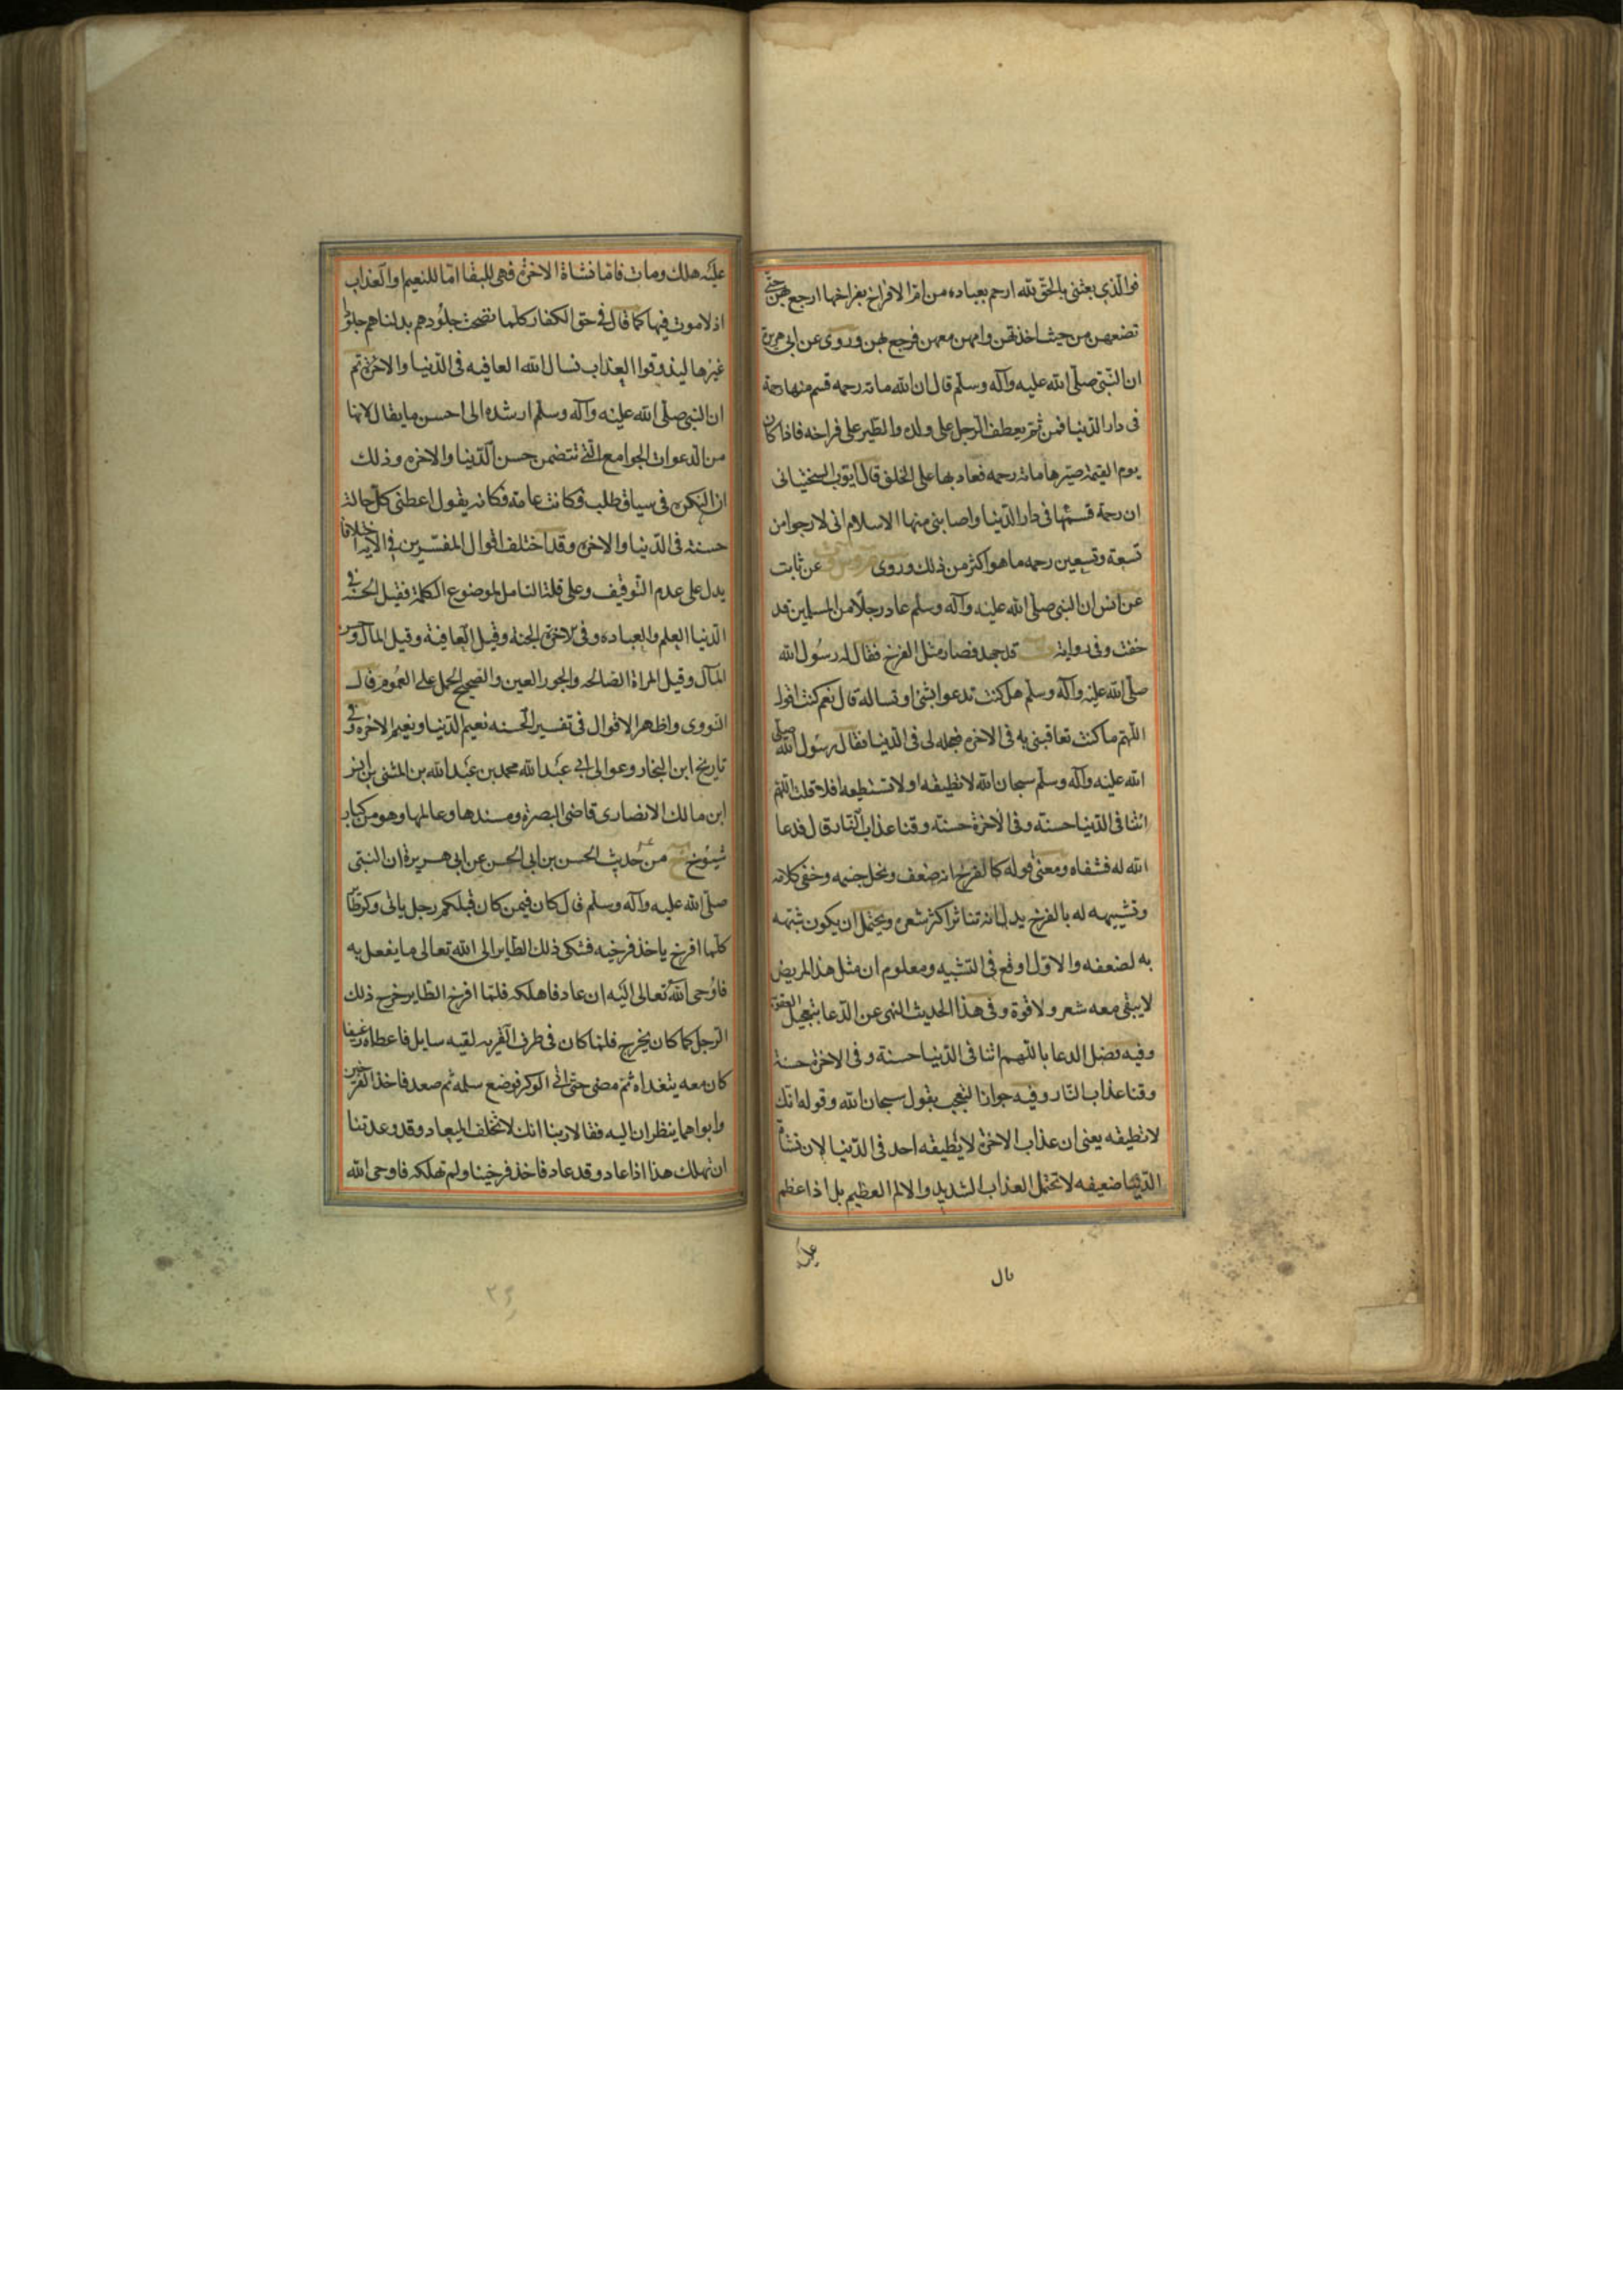 فوالذي بعثني بالحق لله ارحم بعباده من ام الافراخ بفراخها ارجع بهن حتى
تضعهن من حيث اخذتهن وامهن معهن فرجع بهن وروى عن ابي هريرة
ان النبي صلى الله عليه وآله وسلم قال ان الله مائة رحمه قسم منها رحمة
في دار الدنيا فمن ثم يعطف الرجل على ولده والطير على فراخه فاذا كان
يوم القيمة صيرها مائة رحمه فعاد بها على الخلق قال ايوب السختياني
ان رحمة قسمها في دار الدنيا واصابني منها الاسلام اني لارجوا من
تسعة وتسعين رحمه ما هو اكثر من ذلك وروى عن ثابت
عن انس ان النبي صلى الله عليه وآله وسلم عاد رجلا من المسلمين قد
خفت وفي رواية قد جهد فصار مثل الفرخ فقال له رسول الله
صلى الله عليه وآله وسلم هل كنت تدعوا بشئ او تساله قال نعم كنت اقول
اللهم ما كنت تعاقبني به في الاخره فعجله لي في الدنيا فقال رسول الله صلى
الله عليه وآله وسلم سبحان الله لا تطيقه او لا تستطيعه افلا قلت اللهم
اتنا في الدنيا حسنة وفي الاخرة حسنة وقنا عذاب النار قال فدعا
الله له فشفاه ومعنى قوله كالفرخ انه ضعف ونحل جسمه وخفى كلامه
وتشبيهه له بالفرخ يدل انه تناثر اكثر شعره ويحتمل ان يكون شبهه
به لضعفه والاول اوقع في التشبيه ومعلوم ان مثل هذا المريض
لا يبقى معه شعر ولا قوة وفي هذا الحديث النهى عن الدعا بتعجيل العقوبة
وفيه فضل الدعا باللهم اتنا في الدنيا حسنة وفي الاخرة حسنة
وقنا عذاب النار وفيه جواز التعجب بقول سبحان الله وقوله انك
لا تطيقه يعنى ان عذاب الاخرة لا يطيقه احد في الدنيا لان نشاة
الدنيا ضعيفه لا تحتمل العذاب الشديد والالم العظيم بل اذا عظم
عليه
عليه هلك ومات فاما نشاة الاخرة فهى للبقا اما للنعيم او العذاب
اذ لا موت فيها كما قال في حق الكفار كلما نضجت جلودهم بدلناهم جلودا
غيرها ليذوقوا العذاب نسال الله العافيه في الدنيا والاخرة ثم
ان النبي صلى الله عليه وآله وسلم ارشده الى احسن ما يقال لانها
من الدعوات الجوامع التي تتضمن حسن الدنيا والاخره وذلك
ان النكره في سياق طلب فكانت عامة فكانه يقول اعطني كل حالة
حسنة في الدنيا والاخره وقد اختلف اقوال المفسرين في الايه اختلافا
يدل على عدم التوقيف وعلى قلة التامل لموضوع الكلمة فقيل الحسنة في
الدنيا العلم والعباده وفي الاخرة الجنة وقيل العافية وقيل المال وحسن
المآل وقيل المراة الصالحه والحور العين والصحيح الحمل على العموم قال
النووى واظهر الاقوال في تفسير الحسنه نعيم الدنيا ونعيم الاخره وفي
تاريخ ابن النجار وعوالى ابي عبد الله محمد بن عبد الله بن المثنى بن انس
ابن مالك الانصارى قاضى البصرة ومسندها وعالمها وهو من كبار
شيوخ من حديث الحسن بن ابي الحسن عن ابي هريرة ان النبي
صلى الله عليه وآله وسلم قال كان فيمن كان قبلكم رجل ياتي وكر طائر
كلما افرخ ياخذ فرخيه فشكى ذلك الطاير الى الله تعالى ما يفعل به
فاوحى الله تعالى اليه ان عاد فاهلكه فلما افرخ الطاير خرج ذلك
الرجل كما كان يخرج فلما كان في طرف القريه لقيه سايل فاعطاه رغيفا
كان معه يتغداه ثم مضى حتى اتى الوكر فوضع سلمه ثم صعد فاخذ الفرخين
وابواهما ينظران اليه فقالا ربنا انك لا تخلف الميعاد وقد وعدتنا
ان تهلك هذا اذا عاد وقد عاد فاخذ فرخينا ولم تهلكه فاوحى الله